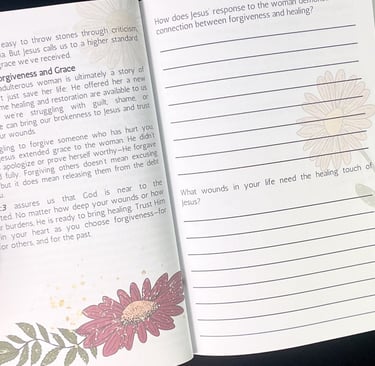 easy to throw stones through criticism,
But Jesus calls us to a higher standard
grace we've received.
orgiveness and Grace
adulterous woman is ultimately a story of
t just save her life. He offered her a new
me healing and restoration are available to us
we're struggling with guilt, shame, or
e can bring our brokenness to Jesus and trust
ur wounds.
gling to forgive someone who has hurt you,
Jesus extended grace to the woman. He didn't
apologize or prove herself worthy—He forgave
fully. Forgiving others doesn't mean excusing
but it does mean releasing them from the debt
:3 assures us that God is near to the
ted. No matter how deep your wounds or how
r burdens, He is ready to bring healing. Trust Him
in your heart as you choose forgiveness—for
for others, and for the past.
How does Jesus' response to the woman demons
connection between forgiveness and healing?
What wounds in your life need the healing touch of
Jesus?